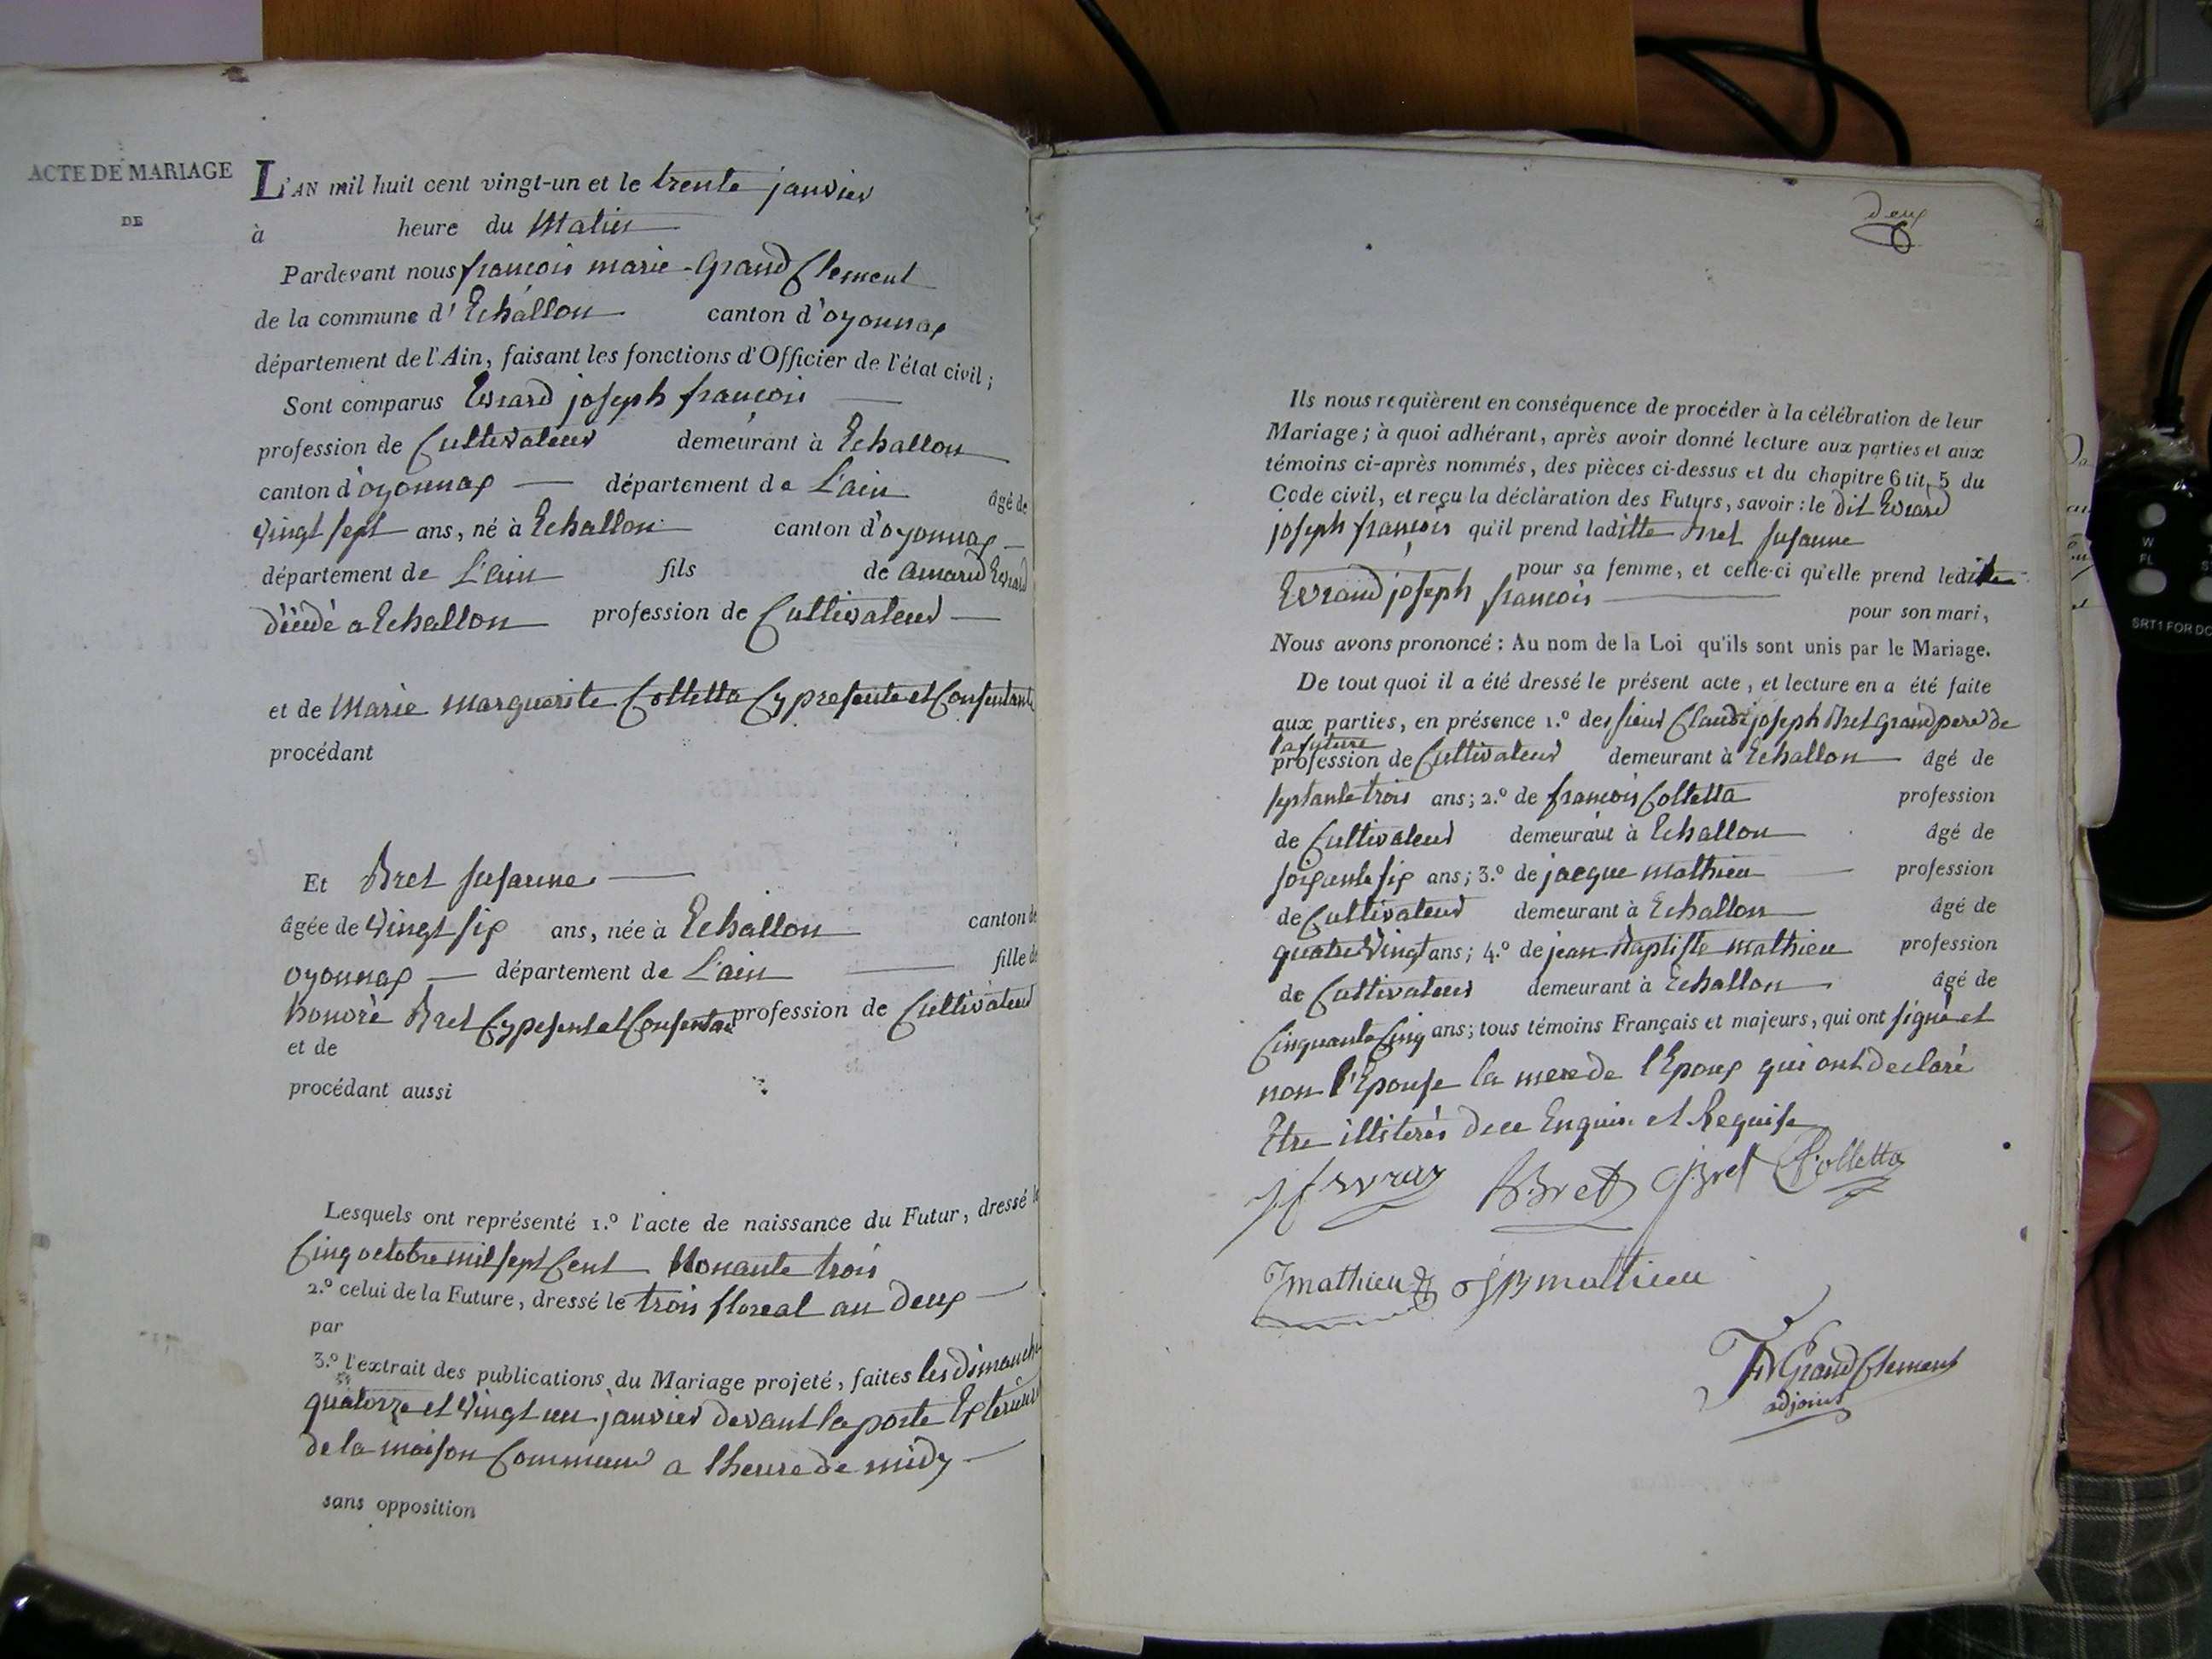 ACTE DE MARIAGE
DE
L'AN mil huit cent vingt-un et le trente janvier
à heure du Matin
Pardevant nous françois marie Grand Clement
de la commune d' Echallon canton d'oyonnax
département de l'Ain, faisant les fonctions d'Officier de l'état civil ;
Sont comparus Evrard joseph françois
profession de Cultivateur demeurant à Echallon
canton d'oyonnax département de L'ain âgé de
vingt sept ans, né à Echallon canton d'oyonnax
département de L'ain fils de amand Evrard
décédé a Echallon profession de Cultivateur
et de Marie marguerite Colletta Cy presente et Consentante
procédant
Et Bret susanne
âgée de vingt six ans, née à Echallon canton de
oyonnax département de L'ain fille de
honoré Bret Cy pesent et Consentan profession de Cultivateur
et de
procédant aussi
Lesquels ont représenté 1.º l'acte de naissance du Futur, dressé le
Cinq octobre mil sept Cent Nonante trois
2.º celui de la Future, dressé le trois floreal an deux
par
3.º l'extrait des publications du Mariage projeté, faites les dimanche
quatorze et vingt un janvier devant la porte Exterieure
de la maison Commune a l'heure de midy
sans opposition
deux
Ils nous requièrent en conséquence de procéder à la célébration de leur
Mariage ; à quoi adhérant, après avoir donné lecture aux parties et aux
témoins ci-après nommés, des pièces ci-dessus et du chapitre 6 tit. 5 du
Code civil, et reçu la déclaration des Futurs, savoir : le dit Evrard
joseph françois qu'il prend laditte Bret susanne
pour sa femme, et celle-ci qu'elle prend ledit
Evraud joseph françois
pour son mari,
Nous avons prononcé : Au nom de la Loi qu'ils sont unis par le Mariage.
De tout quoi il a été dressé le présent acte, et lecture en a été faite
aux parties, en présence 1.º des sieur Claude joseph Bret Grand pere de
la future
profession de Cultivateur demeurant à Echallon âgé de
septante trois ans ; 2.º de francois Colletta profession
de Cultivateur demeurant à Echallon âgé de
soixante six ans ; 3.º de jacque mathieu profession
de Cultivateur demeurant à Echallon âgé de
quatre vingt ans ; 4.º de jean Baptiste mathieu profession
de Cultivateur demeurant à Echallon âgé de
Cinquante Cinq ans ; tous témoins Français et majeurs, qui ont signé et
non l'Epouse la mere de l'Epoux qui ont declaré
Etre illiterés de ce Enquis et Requise
Bret Bret Colletta
mathieu mathieu
Grand Clement
adjoint
W
FL
SRT1 FOR DC